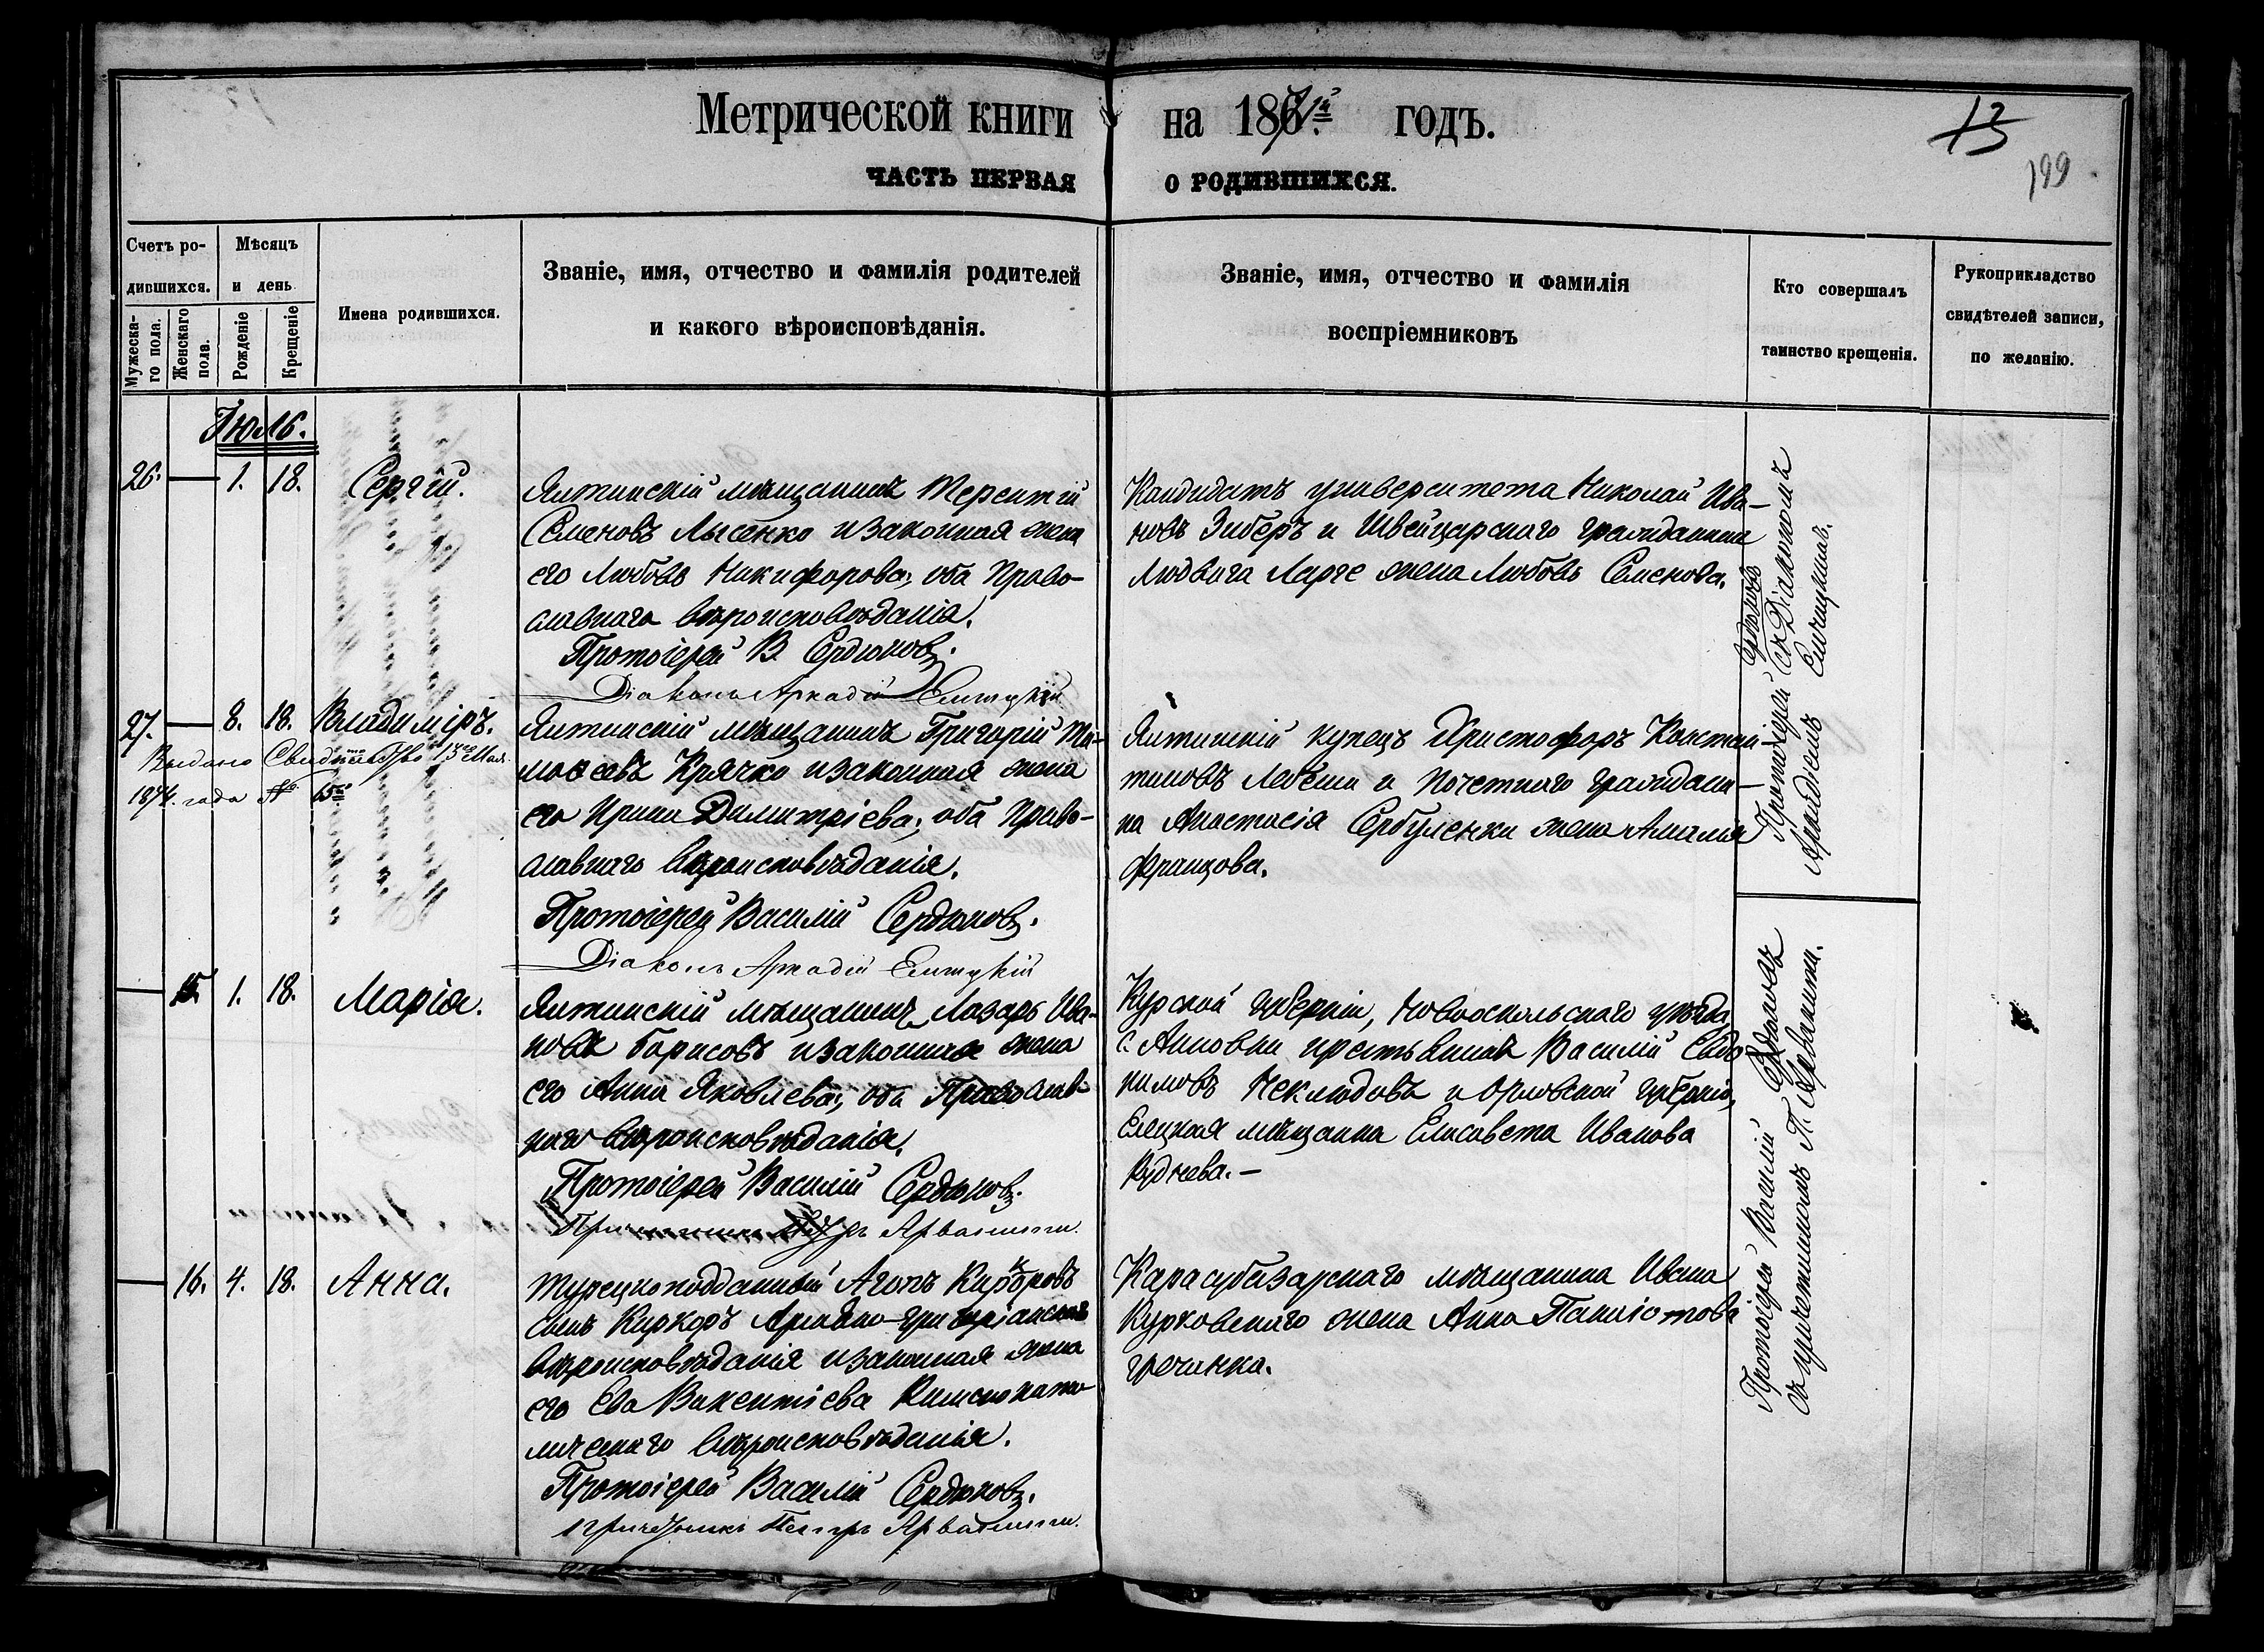 Метрической книги на 1871й годъ.
13
199
ЧАСТЬ ПЕРВАЯ О РОДИВШИХСЯ.
Счетъ ро-
дившихся.
Мужеска-
го пола.
Женскаго
пола.
Мѣсяцъ
и день
Рожденіе
Крещеніе
Имена родившихся.
Званіе, имя, отчество и фамилія родителей
и какого вѣроисповѣданія.
Званіе, имя, отчество и фамилія
воспріемниковъ
Кто совершалъ
таинство крещенія.
Рукоприкладство
свидѣтелей записи,
по желанію.
Іюль.
26. 1. 18. Сергій.
Ялтинскій мѣщанинъ Терентій
Семеновъ Лысенко и законная жена
его Любовь Никифорова; оба Право-
славнаго вѣроисповѣданія.
Протоіерей В. Сердюковъ.
Діаконъ Аркадій
Кандидатъ университета Николай Ива-
новъ Зиберъ и Швейцарскаго гражданина
Людвига Ларге жена Любовь Семенова.
27. 8. 18. Владиміръ.
Выдано Свидѣтельство Мая
1874. года №
Ялтинскій мѣщанинъ Григорій Ти-
моѳеевъ Крячко и законная жена
его Ирина Димитріева; оба Право-
славнаго вѣроисповѣданія.
Протоіерей Василій Сердюковъ.
Діаконъ Аркадій
Ялтинскій купецъ Христофоръ Констан-
тиновъ и Почетнаго граждани-
на Анастасія Сербуленки жена Амалія
Францова.
Протоіерей Сердюковъ
съ Діакономъ
Аркадіемъ
15. 1. 18. Марія.
Ялтинскій мѣщанинъ Лазарь Ива-
новъ Борисовъ и законная жена
его Анна Яковлева; оба Православ-
наго вѣроисповѣданія.
Протоіерей Василій Сердюковъ.
Причетникъ Петръ
Курской губерніи, Новооскольскаго уѣзда
с. Анновки крестьянинъ Василій Евдо-
кимовъ Неклюдовъ и Орловской губерніи,
Елецкая мѣщанка Елисавета Иванова
Руднева.—
16. 4. 18. Анна.
Турецкоподданный Агопъ
сынъ Киркоръ Армяно-григоріанскаго
вѣроисповѣданія и законная жена
его Ева Викентіева Римскокато-
лическаго вѣроисповѣданія.
Протоіерей Василій Сердюковъ.
Причетникъ Петръ
Карасубазарскаго мѣщанина Ивана
Курковскаго жена Анна Панаіотова
гречанка.
Протоіерей Василій Сердюковъ
съ причетникомъ П.